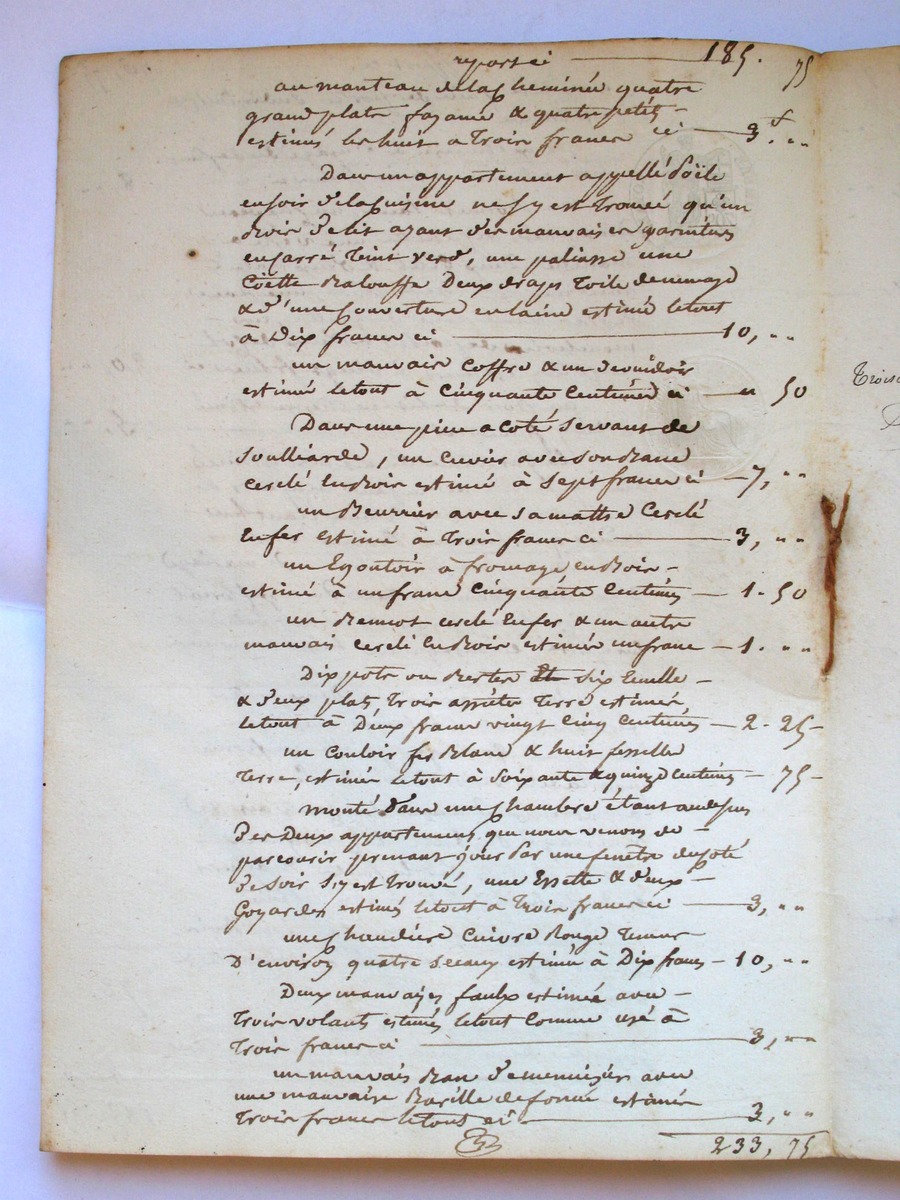 report ci 185. 75
au manteau de la cheminée quatre
grand plats façonné & quatre petits
estimés les huit a Trois francs ci 3 f "
Dans un appartement appellé Poële
en soir de la cuisine ne s'y est trouvé qu'un
bois de lit ayant des mauvaises garnitures
en sarré teint verd, une paliasse une
Coëtte Balouffe Deux draps toile de menage
& d'une couverture en laine estimé le tout
à Dix francs ci 10, "
un mauvais coffre & un devuidoir
estimé le tout à Cinquante Centimes ci " 50
Dans une piece a coté servant de
Soulliarde, un cuvier avec son Banc
cerclé en Bois estimé à Sept francs ci 7, "
un Beurrier avec sa mattre Cerclé
en fer estimé à Trois francs ci 3, "
un Egoutoir à fromage en Bois
estimé à un franc Cinquante Centimes 1. 50
un cerclé en fer & un autre
mauvais cerclé en Bois estimés un franc 1. "
Dix pots ou Bertes six
& deux plats, Trois assiettes Terre estimés,
le tout à Deux francs vingt Cinq Centimes 2. 25
un Couloir fer Blanc & huit fesselles
Terre, estimés le tout à Soixante & quinze Centimes 75
Monté dans une chambre étant au dessus
des Deux appartements que nous venons de
parcourir prenant jour Par une fenêtre du coté
de soir s'y est trouvé, une Essette & deux
Goyardes estimés le tout à Trois francs ci 3, "
une chaudiere Cuivre Rouge Tenant
D'environ quatre seceaux estimée à Dix francs 10, "
Deux mauvaises faulx estimée avec
Trois volants estimés le tout Comme usé à
Trois francs ci 3, "
un mauvais Banc de menuisier avec
une mauvaise Barille deforme estimés
Trois francs le tout ci 3, "
233, 75